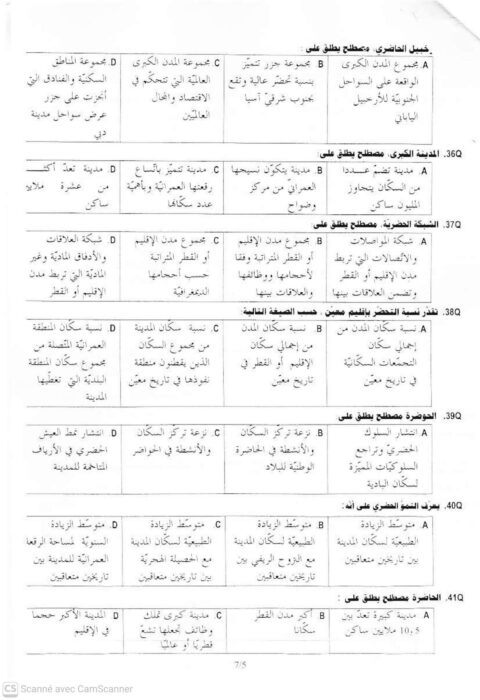 خبيل الحاضري، مصطلح يطلق على :
A. مجموع المدن الكبرى
الواقعة على السواحل
الجنوبية للأرخبيل
الياباني
B. مجموعة جزر تتميّز
بنسبة تحضّر عالية وتقع
بجنوب شرقيّ آسيا
C. مجموعة المدن الكبرى
العالميّة التي تتحكّم في
الاقتصاد والمجال
العالميّين
D. مجموعة المناطق
السكنيّة والفنادق التي
أنجزت على جزر
عرض سواحل مدينة
دبي
36Q. المدينة الكبرى، مصطلح يطلق على:
A. مدينة تضمّ عددا
من السكّان يتجاوز
المليون ساكن
B. مدينة يتكوّن نسيجها
العمراني من مركز
وضواح
C. مدينة تتميّز باتّساع
رقعتها العمرانيّة وبأهميّة
عدد سكّانها
D. مدينة تعدّ أكثر
من عشرة ملايين
ساكن
37Q. الشبكة الحضريّة، مصطلح يطلق على:
A. شبكة المواصلات
والاتّصالات التي تربط
مدن الإقليم أو القطر
وتضمن العلاقات بينها
B. مجموع مدن الإقليم
أو القطر المتراتبة وفقا
لأحجامها ووظائفها
والعلاقات بينها
C. مجموع مدن الإقليم
أو القطر المتراتبة
حسب أحجامها
الديمغرافيّة
D. شبكة العلاقات
والأدفاق الماديّة وغير
الماديّة التي تربط مدن
الإقليم أو القطر
38Q. تقدّر نسبة التحضّر بإقليم معيّن، حسب الصيغة التالية:
A. نسبة سكّان المدن من
إجمالي سكّان
التجمّعات السكّانية
في تاريخ معيّن
B. نسبة سكّان المدن
من إجمالي سكّان
الإقليم أو القطر في
تاريخ معيّن
C. نسبة سكّان المدينة
من مجموع السكّان
الذين يقطنون منطقة
نفوذها في تاريخ معيّن
D. نسبة سكّان المنطقة
العمرانيّة المتّصلة من
مجموع سكّان المنطقة
البلديّة التي تغطّيها
المدينة
39Q. الحوضرة مصطلح يطلق على:
A. انتشار السلوك
الحضريّ وتراجع
السلوكيات المميّزة
لسكّان البادية
B. نزعة تركّز السكّان
والأنشطة في الحاضرة
الوطنيّة للبلاد
C. نزعة تركّز السكّان
والأنشطة في الحواضر
D. انتشار نمط العيش
الحضري في الأرياف
المتاخمة للمدينة
40Q. يعرّف النموّ الحضري على أنّه:
A. متوسّط الزيادة
الطبيعيّة لسكّان المدينة
بين تاريخين متعاقبين
B. متوسّط الزيادة
الطبيعيّة لسكّان المدينة
مع النزوح الريفي بين
تاريخين متعاقبين
C. متوسّط الزيادة
الطبيعيّة لسكّان المدينة
مع الحصيلة الهجريّة
بين تاريخين متعاقبين
D. متوسّط الزيادة
السنويّة لمساحة الرقعة
العمرانيّة للمدينة بين
تاريخين متعاقبين
41Q. الحاضرة مصطلح يطلق على :
A. مدينة كبيرة تعدّ بين
5 و10 ملايين ساكن
B. أكبر مدن القطر
سكّانا
C. مدينة كبرى تملك
وظائف تجعلها تشعّ
قطريّا أو عالميّا
D. المدينة الأكبر حجما
في الإقليم
7/5
CS Scanné avec CamScanner